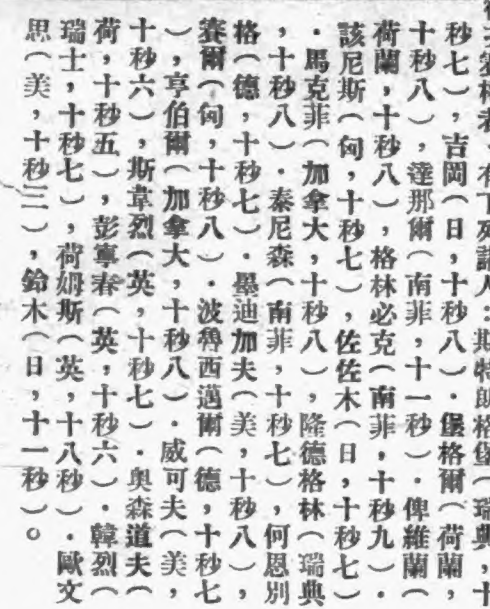 有下列諸人：斯特朗格堡（瑞典，十
秒七），吉岡（日，十秒八）．堡格爾（荷蘭，
十秒八），達那爾（南菲，十一秒）．俾維蘭（
荷蘭，十秒八），格林必克（南菲，十秒九）．
該尼斯（匈，十秒七），佐佐木（日，十秒七）
．馬克菲（加拿大，十秒八），隆德格林（瑞典
，十秒八）．泰尼森（南菲，十秒七），何恩別
格（德，十秒七）．墨迪加夫（美，十秒八），
賽爾（匈，十秒八）．波魯西邁爾（德，十秒七
），亨伯爾（加拿大，十秒八）．威可夫（美，
十秒六），斯韋烈（英，十秒七）．奧森道夫（
荷，十秒五），彭寧春（英，十秒六）．韓烈（
瑞士，十秒七），荷姆斯（英，十八秒）．歐文
思（美，十秒三），鈴木（日，十一秒）。